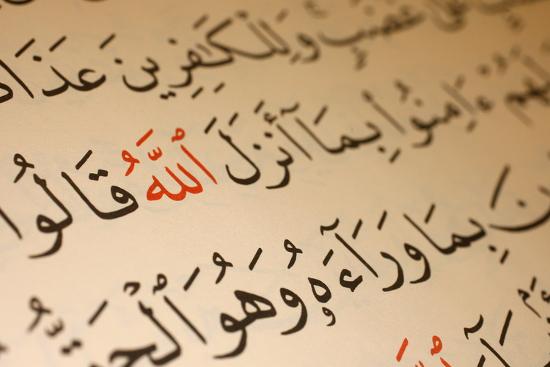 غَضَبٍ وَلِلْكَٰفِرِينَ عَذَا
لَهُمْ ءَامِنُوا۟ بِمَآ أَنزَلَ ٱللَّهُ قَالُوا
نَ بِمَا وَرَآءَهُۥ وَهُوَ ٱلْحَقُّ